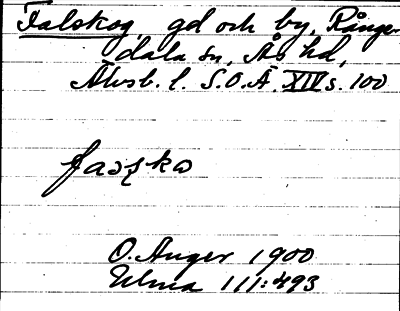 Falskog, gd och by, Rånge-
dala sn, Ås hd,
Älvsb. l. S.O.Ä. XIV s. 100
O. Anger 1900
Ulma 111:493